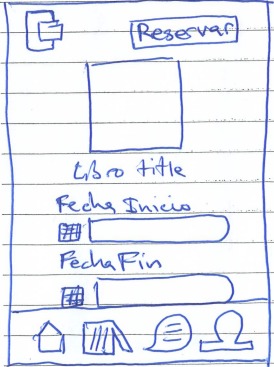 Reservar
Libro title
Fecha Inicio
Fecha Fin